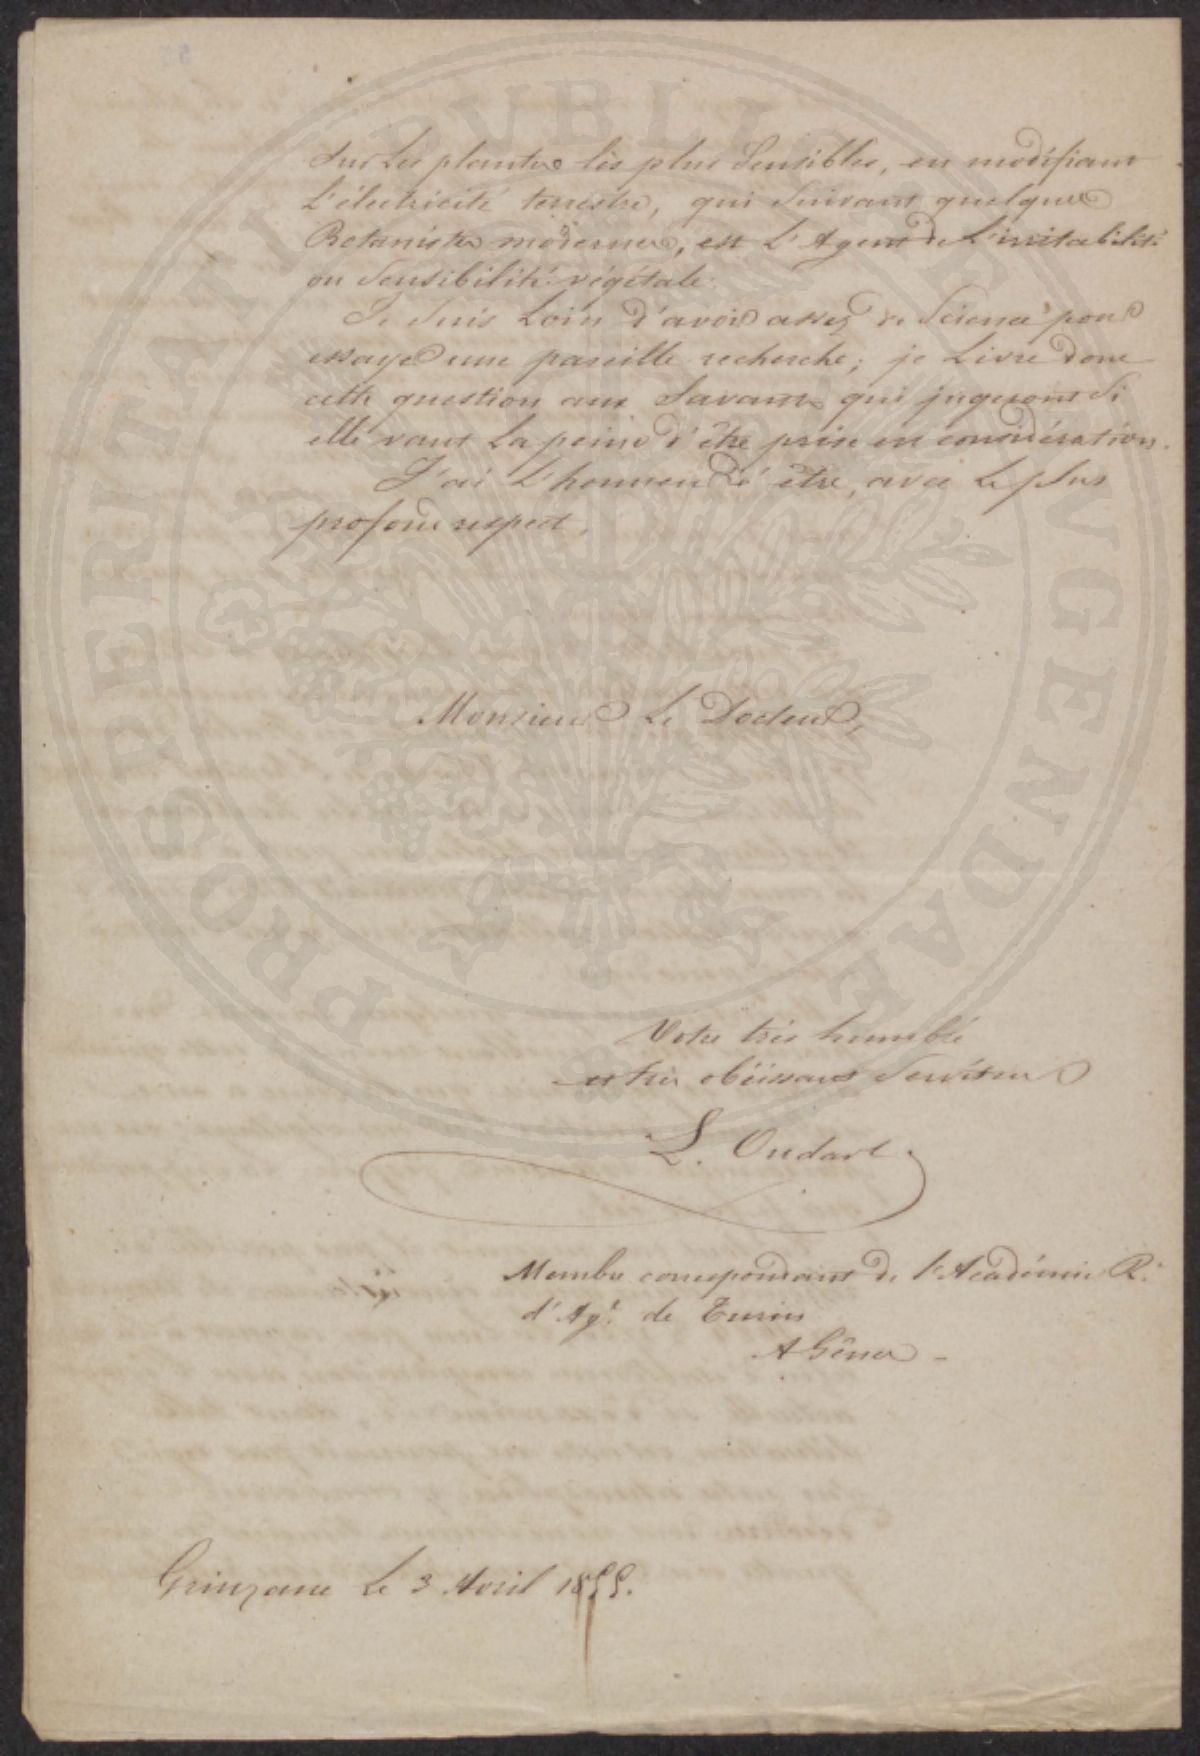 sur les plantes les plus sensibles, en modifiant
l'électricité terrestre, qui suivant quelques
Botanistes modernes, est l'Agent de l'irritabilité
ou sensibilité végétale.
Je suis loin d'avoir assez de science pour
essayer une pareille recherche; je livre donc
cette question aux Savants qui jugeront si
elle vaut la peine d'être prise en considération.
J'ai l'honneur d'être, avec le plus
profond respect,
Monsieur le Docteur,
Votre très humble
et très obéissant Serviteur
L. Oudart
Membre correspondant de l'Académie R.
d'Agr. de Turin
A Gênes -
Grinzane le 3 Avril 1855.
PROSPERITATI PUBLICAE AUGENDAE